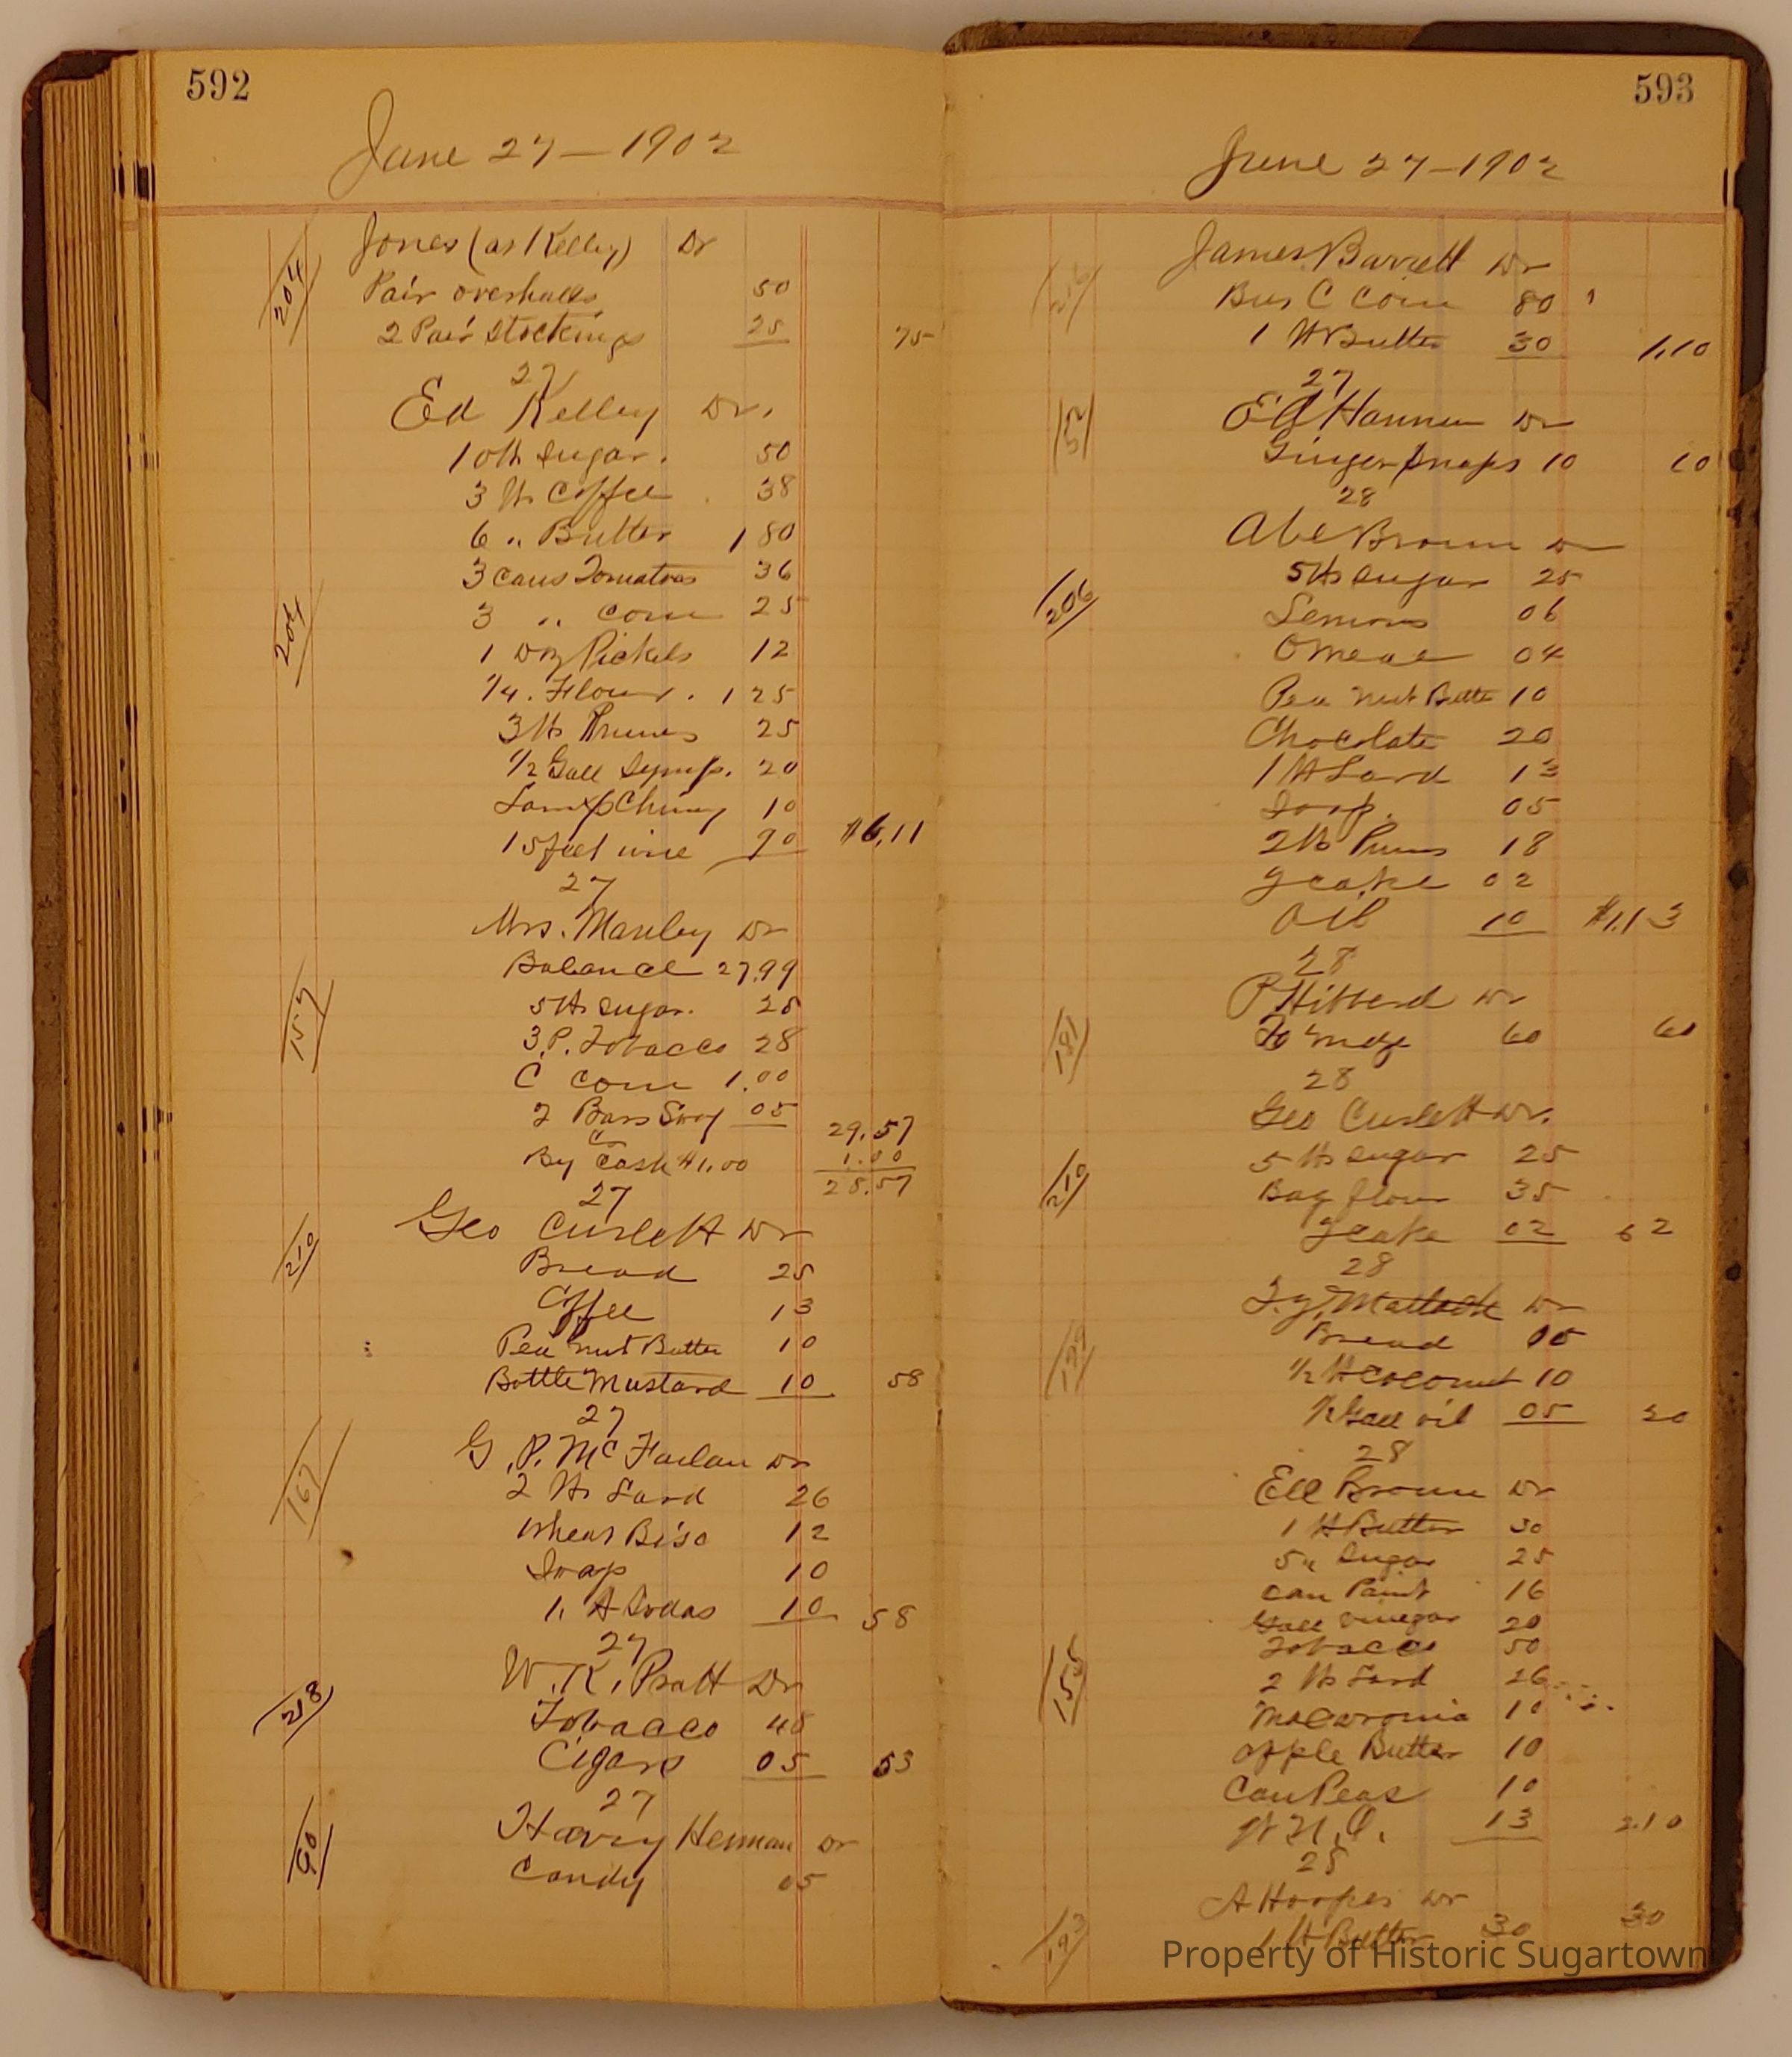 592
June 27 - 1902
204
Jones (as Kelley) Dr
Pair overhalls 50
2 Pair Stockings 25 75
27
Ed Kelley Dr.
204
10 lb Sugar. 50
3 lb Coffee 38
6 " Butter 1 80
3 cans Tomatoes 36
3 " corn 25
1 Doz Pickels 12
1/4. Flour. 1 25
3 lb Prunes 25
1/2 Gall Syrup. 20
Lamp Chimey 10
15 feet wire 90 $6.11
27
Mrs. Manley Dr
157
Balance 27.99
5 lb Sugar. 25
3.P. Tobacco 28
C corn 1.00
2 Bars Soap 05 29.57
By Cash $1.00 1.00
28.57
27
210
Geo Curlett Dr
Bread 25
Coffee 13
Pea nut Butter 10
Bottle Mustard 10 58
27
167
G.P. McFarlan Dr
2 lb Lard 26
Wheat Bisc 12
Soap 10
1 lb Sodas 10 58
27
218
W.K. Pratt Dr
Tobacco 48
Cigars 05 53
27
90
Harry Herman Dr
Candy 05
593
June 27 - 1902
James Barrett Dr
Bus C Corn 80
1 lb Butter 30 1.10
27
152
Ed Hannum Dr
Ginger Snaps 10 10
28
Abe Brown Dr
206
5 lb Sugar 25
Lemons 06
O meal 04
Pea nut Butter 10
Chocolate 20
1 lb Lard 13
Soap. 05
2 lb Pruns 18
Y cake 02
Oil 10 $1.13
28
P Hibberd Dr
181
60 60
28
Geo Curlett Dr.
210
5 lb Sugar 25
Bag flour 35
Y cake 02 62
28
T.J. Matlack Dr
199
Bread 05
1/2 lb Coconut 10
1/2 Gall oil 05 20
28
Ell Brown Dr
155
1 lb Butter 30
5 " Sugar 25
can Paint 16
Gall vinegar 20
Tobacco 50
2 lb Lard 26
Macaronia 10
apple Butter 10
Can Peas 10
13 2.10
28
193
A Hoopes Dr
1 lb Butter 30 30
Property of Historic Sugartown